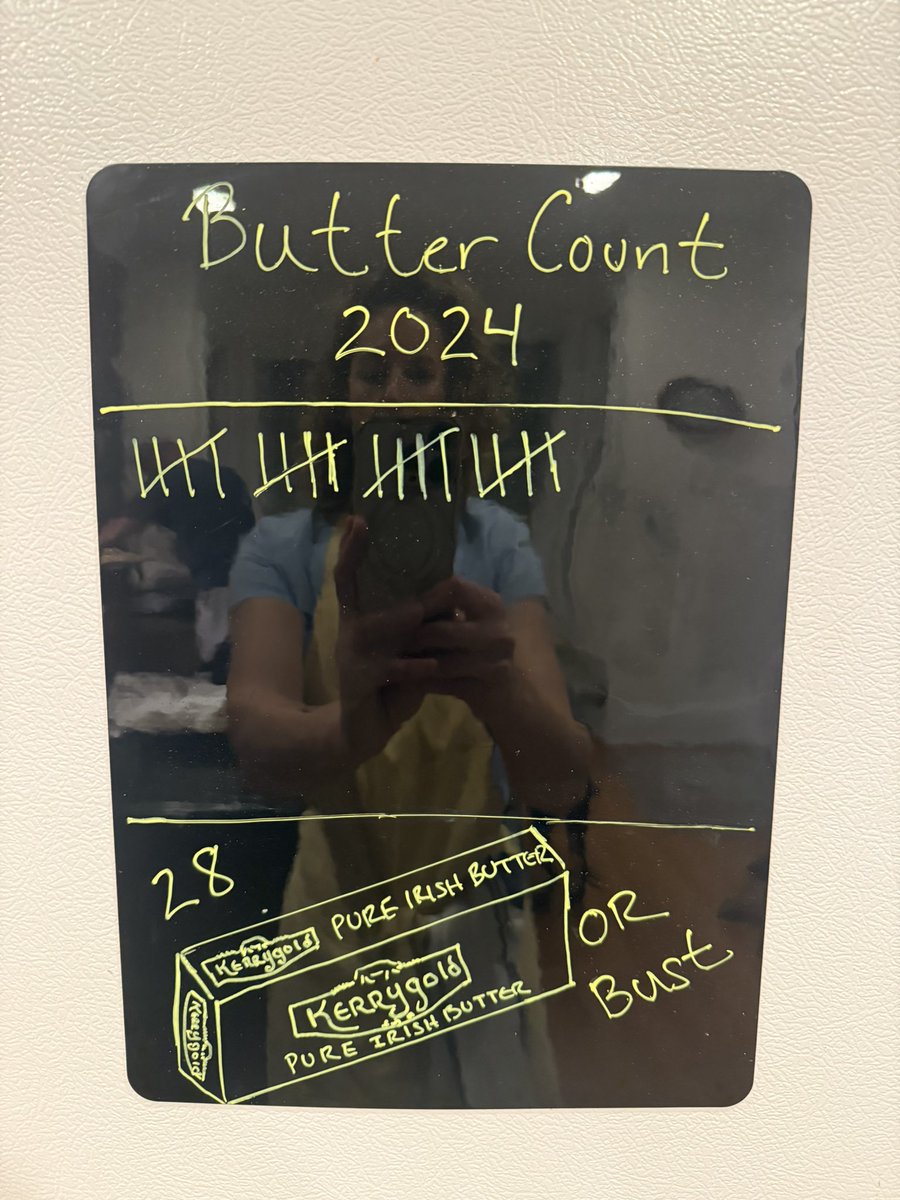 Butter Count
2024
28
Kerrygold PURE IRISH BUTTER
Kerrygold
KERRYgold
PURE IRISH BUTTER
OR
Bust